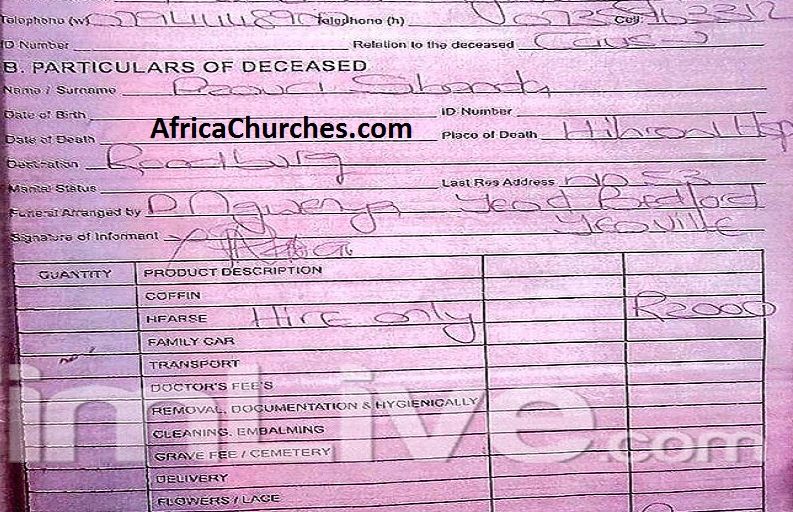 Telephone (w) Telephone (h) Cell:
ID Number Relation to the deceased
B. PARTICULARS OF DECEASED
Name / Surname
Date of Birth ID Number
AfricaChurches.com
Date of Death Place of Death
Destination
Marital Status Last Res Address NO 53
Funeral Arranged by Bedford
Signature of Informant YEOVILLE
QUANTITY PRODUCT DESCRIPTION
COFFIN
HEARSE Hire only R2000
FAMILY CAR
TRANSPORT
DOCTOR'S FEE'S
REMOVAL, DOCUMENTATION & HYGIENICALLY
CLEANING, EMBALMING
GRAVE FEE / CEMETERY
DELIVERY
FLOWERS / LACE
imLive.com